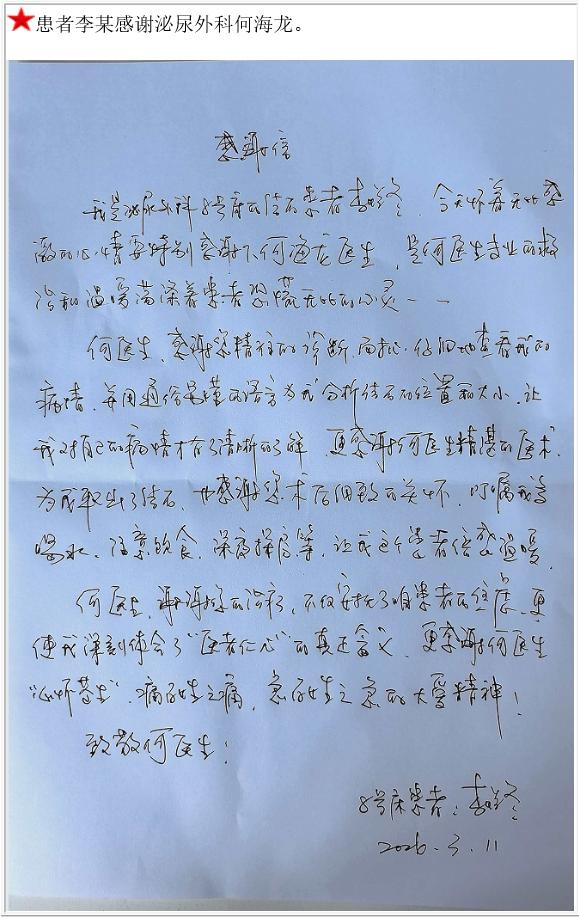 患者李某感谢泌尿外科何海龙。
感谢信
我是泌尿外科8号床的结石患者李 今天怀着无比感
激的心情要特别感谢何海龙医生,是何医生专业的救
治和温暖荡涤着患者恐慌无比的心灵——
何医生,感谢您精准的诊断,而且仔细地查看我的
病情,并用通俗易懂的语言为我分析结石的位置和大小,让
我对自己的病情才有了清晰的了解,更感谢何医生精湛的医术,
为我取出了结石,也感谢您术后细致的关怀,叮嘱我多
喝水、注意饮食,深夜探房等,让我这个患者倍感温暖。
何医生,谢谢您的治疗,不仅安抚了咱患者的焦虑,更
使我深刻体会了“医者仁心”的真正含义,更感谢何医生
“心怀苍生”、痛医生之痛,急医生之急的大爱精神!
致敬何医生!
8号床患者:李
2026.3.11